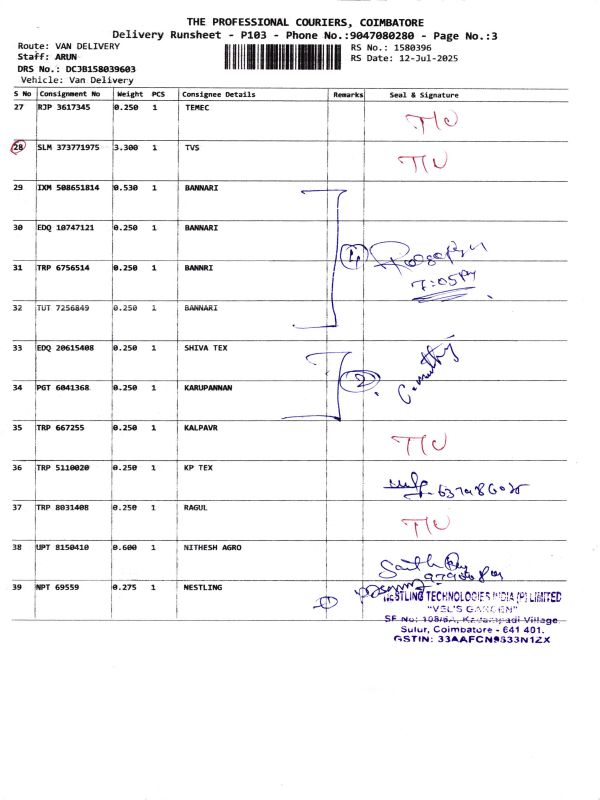 THE PROFESSIONAL COURIERS, COIMBATORE
Delivery Runsheet - P103 - Phone No.:9047080280 - Page No.:3
Route: VAN DELIVERY
Staff: ARUN
DRS No.: DCJB158039603
Vehicle: Van Delivery
RS No.: 1580396
RS Date: 12-Jul-2025
S No Consignment No Weight PCS Consignee Details Remarks Seal & Signature
27 RJP 3617345 0.250 1 TEMEC T/U
28 SLM 373771975 3.300 1 TVS T/U
29 IXM 508651814 0.530 1 BANNARI
30 EDQ 10747121 0.250 1 BANNARI
4
7:05
31 TRP 6756514 0.250 1 BANNRI
32 TUT 7256849 0.250 1 BANNARI
33 EDQ 20615408 0.250 1 SHIVA TEX
2
34 PGT 6041368 0.250 1 KARUPANNAN
35 TRP 667255 0.250 1 KALPAVR T/U
36 TRP 5110020 0.250 1 KP TEX
37 TRP 8031408 0.250 1 RAGUL T/U
38 UPT 8150410 0.600 1 NITHESH AGRO
39 NPT 69559 0.275 1 NESTLING 1
NESTLING TECHNOLOGIES INDIA (P) LIMITED
"VEL'S GARDEN"
SF No: 108/6A, Kadampadi Village
Sulur, Coimbatore - 641 401.
GSTIN: 33AAFCN9533N1ZX